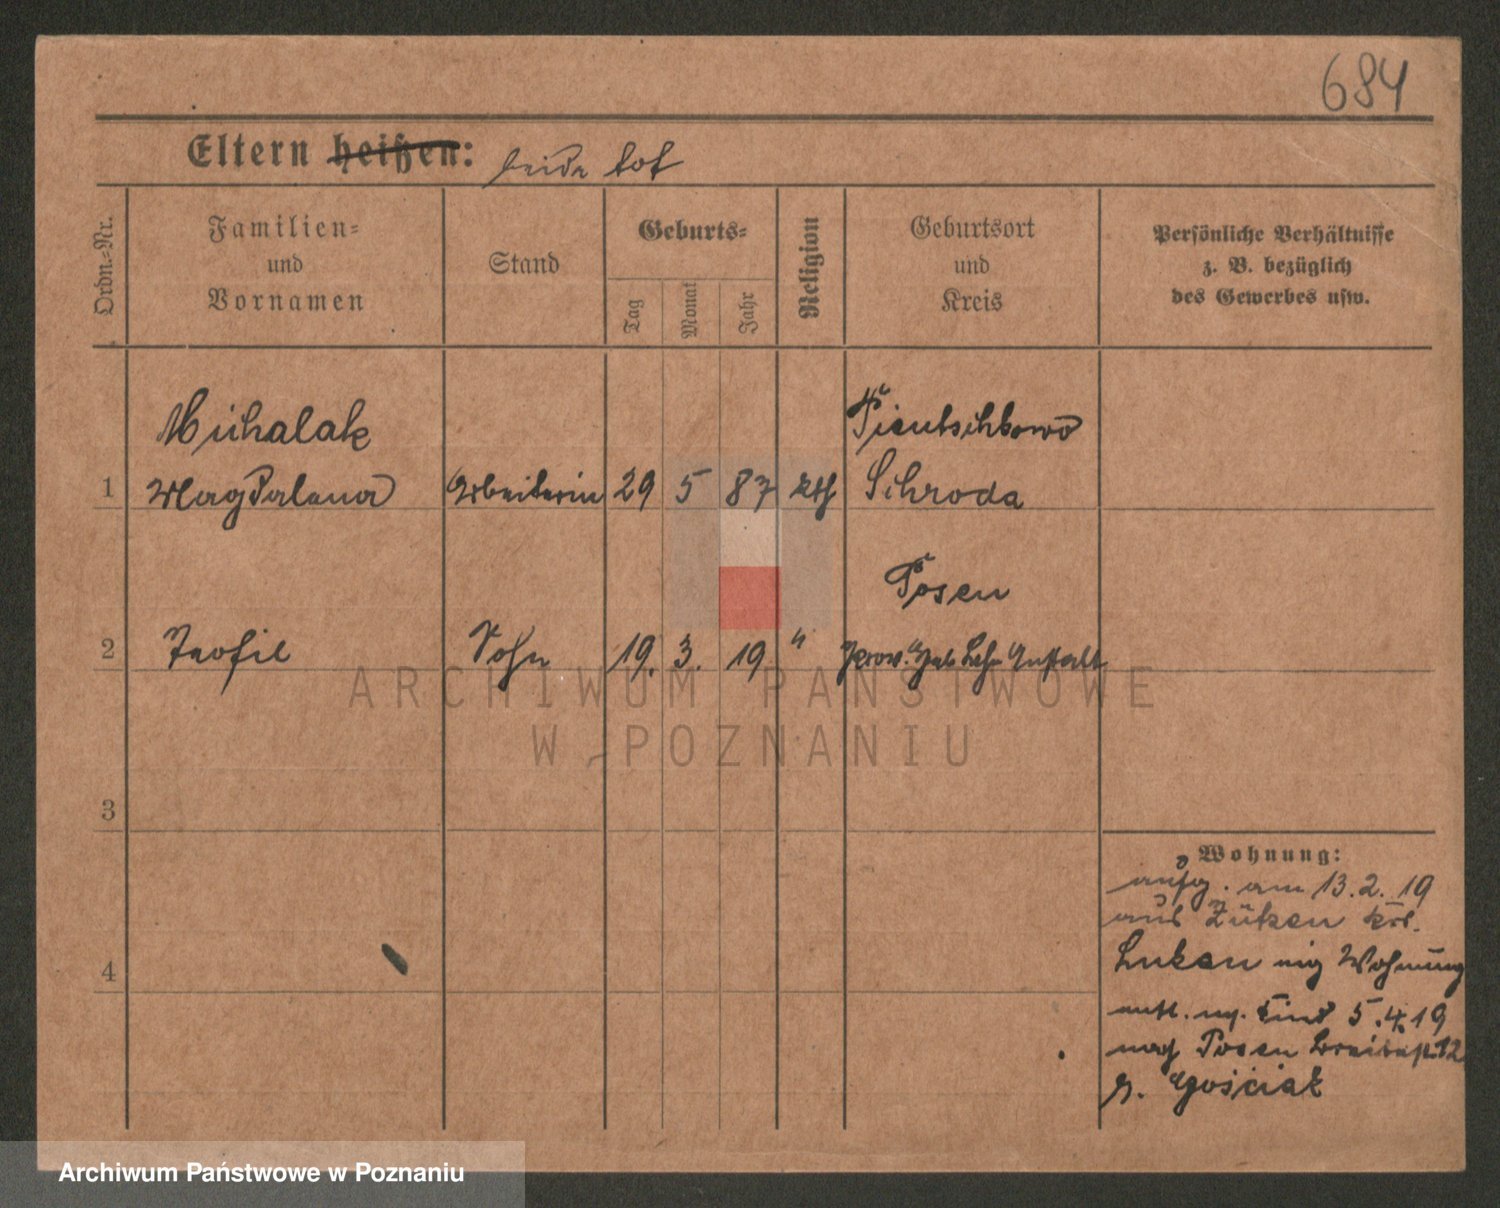 684
Eltern heißen: beide tot
Ordn.-Nr.
Familien-
und
Vornamen
Stand
Geburts-
Tag
Monat
Jahr
Religion
Geburtsort
und
Kreis
Persönliche Verhältnisse
z. B. bezüglich
des Gewerbes usw.
Michalak
Pientschkowo
1 Magdalena Arbeiterin 29 5 87 kth Schroda
Posen
2 Teofil Sohn 19. 3. 19 " Prov. Heb Lehr Anstalt
ARCHIWUM PAŃSTWOWE
W POZNANIU
3
4
Wohnung:
aufg. am 13.2.19
aus Lüken Krs.
Luken eig Wohnung
entl. m. Kind 5.4.19
nach Posen Breitestr. 12
b. Gościak
Archiwum Państwowe w Poznaniu